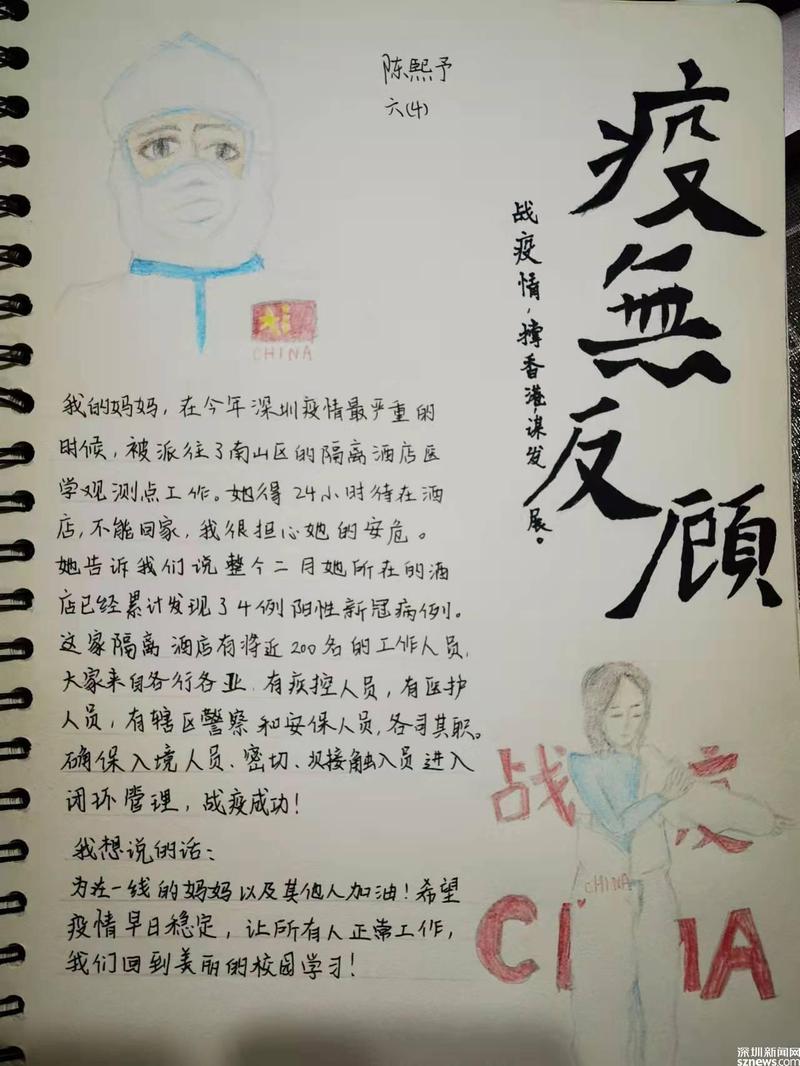 陈熙予
六(4)
疫無反顾
战疫情，撑香港，谋发展。
CHINA
我的妈妈，在今年深圳疫情最严重的
时候，被派往了南山区的隔离酒店医
学观测点工作。她得24小时待在酒
店，不能回家，我很担心她的安危。
她告诉我们说整个二月她所在的酒
店已经累计发现了4例阳性新冠病例。
这家隔离酒店有将近200名的工作人员，
大家来自各行各业，有疾控人员，有医护
人员，有辖区警察和安保人员，各司其职。
确保入境人员、密切、次接触入员进入
闭环管理，战疫成功！
我想说的话：
为在一线的妈妈以及其他人加油！希望
疫情早日稳定，让所有人正常工作，
我们回到美丽的校园学习！
战疫
CHINA
CHINA
深圳新闻网
sznews.com